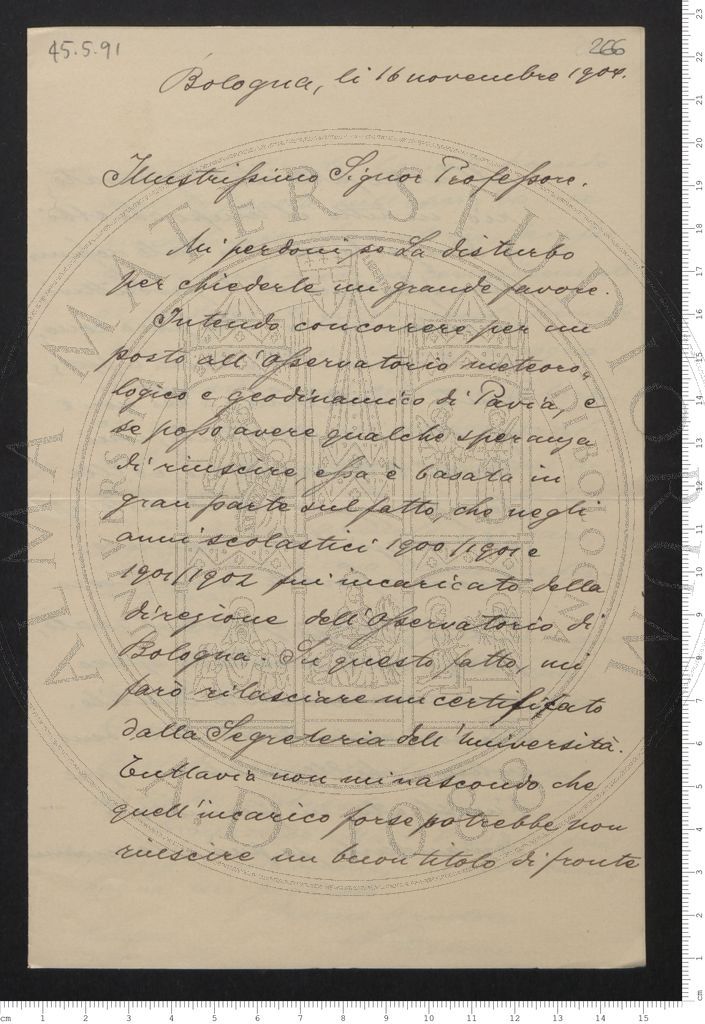 45.5.91
266
Bologna, li 16 novembre 1904.
Illustrissimo Signor Professore.
Mi perdoni, se La disturbo
per chiederle un grande favore.
Intendo concorrere per un
posto all'Osservatorio meteoro-
logico e geodinamico di Pavia, e
se posso avere qualche speranza
di riuscire, essa è basata in
gran parte sul fatto, che negli
anni scolastici 1900/1901 e
1901/1902 fui incaricato della
direzione dell'Osservatorio di
Bologna. Su questo fatto, mi
farò rilasciare un certificato
dalla Segreteria dell'Università.
Tuttavia non mi nascondo che
quell'incarico forse potrebbe non
riescire un buon titolo di fronte
ALMA MATER STUDIORUM
A.D. 1088